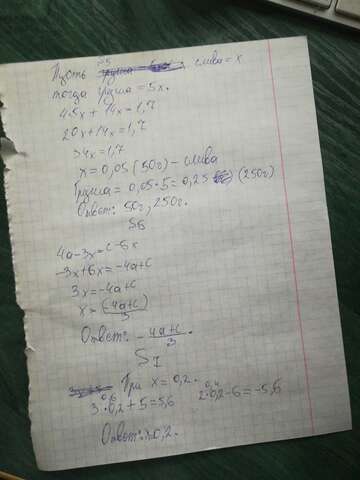 №5
Пусть слива = x
тогда груша = 5x.
4·5x + 14x = 1,7
20x + 14x = 1,7
34x = 1,7
x = 0,05 (50г) – слива
Груша = 0,05·5 = 0,25 (250г)
Ответ: 50г, 250г.
№6
4a - 3x = c - 6x
-3x + 6x = -4a + c
3x = -4a + c
x = (-4a + c)/3
Ответ: -4a + c/3.
№7
При x = 0,2.
3·0,2 + 5 = 5,6 2·0,2 - 6 = -5,6
0,6 0,4
Ответ: 0,2.